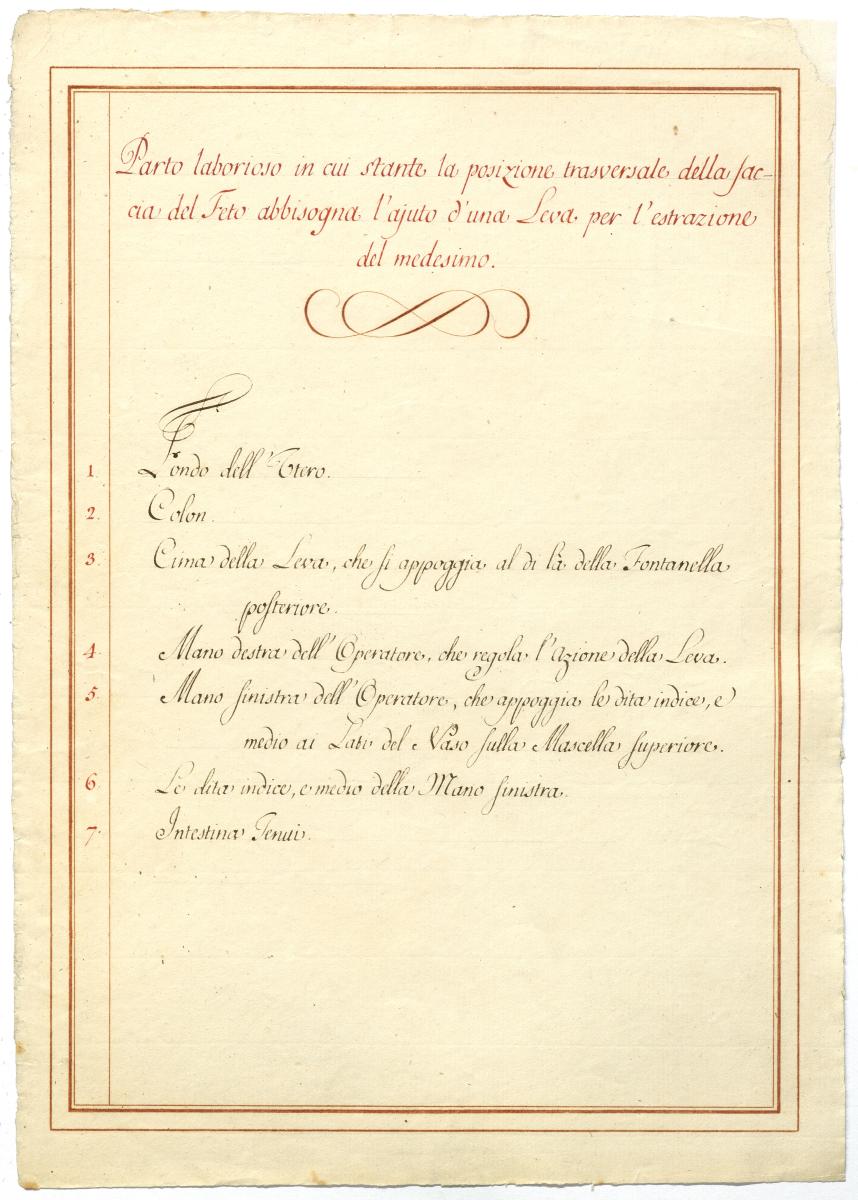 Parto laborioso in cui stante la posizione trasversale della fac-
cia del Feto abbisogna l'ajuto d'una Leva per l'estrazione
del medesimo.
1. Fondo dell'Utero.
2. Colon.
3. Cima della Leva, che si appoggia al di là della Fontanella
posteriore.
4. Mano destra dell'Operatore, che regola l'Azione della Leva.
5. Mano sinistra dell'Operatore, che appoggia le dita indice, e
medio ai Lati del Naso sulla Mascella superiore.
6. Le dita indice, e medio della Mano sinistra.
7. Intestina Tenui.